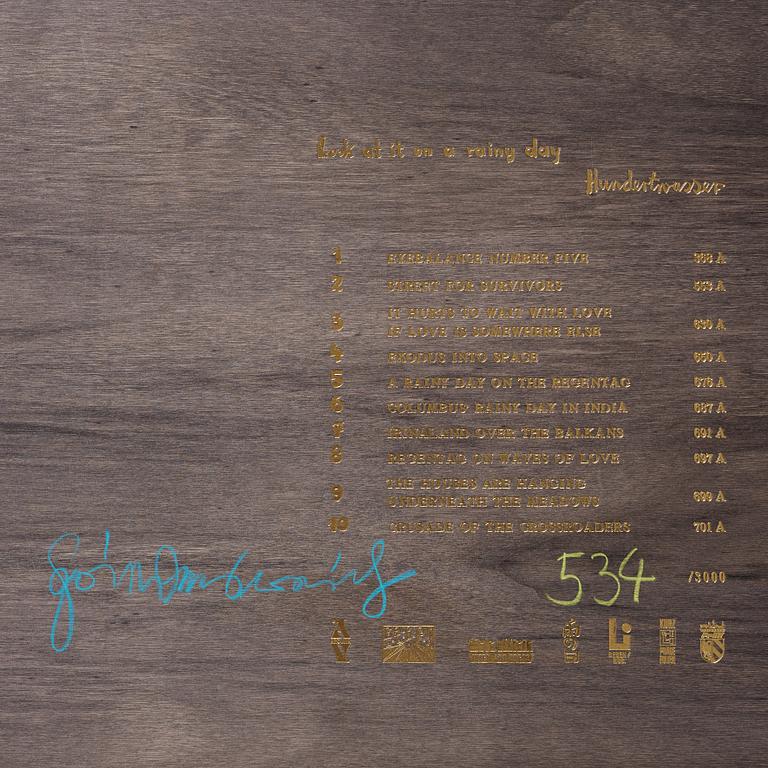 Look at it on a rainy day
Hundertwasser
1 EYEBALANCE NUMBER FIVE 388 A
2 STREET FOR SURVIVORS 553 A
3 IT HURTS TO WAIT WITH LOVE
IF LOVE IS SOMEWHERE ELSE 630 A
4 EXODUS INTO SPACE 650 A
5 A RAINY DAY ON THE REGENTAG 676 A
6 COLUMBUS RAINY DAY IN INDIA 687 A
7 IRINALAND OVER THE BALKANS 691 A
8 REGENTAG ON WAVES OF LOVE 697 A
9 THE HOUSES ARE HANGING
UNDERNEATH THE MEADOWS 699 A
10 CRUSADE OF THE CROSSROADERS 701 A
534 /3000